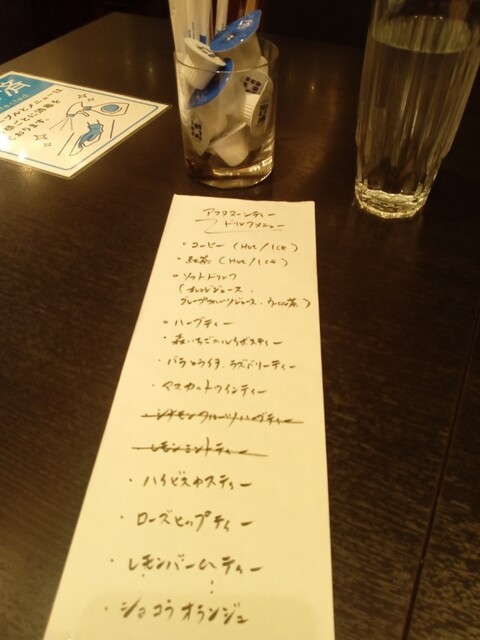 済
ブルとメニューは
様ごとに消毒を
ております。
アフタヌーンティー
ドリンクメニュー
・コーヒー (Hot / Ice)
・紅茶 (Hot / Ice)
・ソフトドリンク
(オレンジジュース・
グレープフルーツジュース・ウーロン茶)
・ハーブティー
・森いちごのルイボスティー
・バラとライチ、ラズベリーティー
・マスカットワインティー
レモンミントティー
・ハイビスカスティー
・ローズヒップティー
・レモンバームティー
・ショコラオランジュ